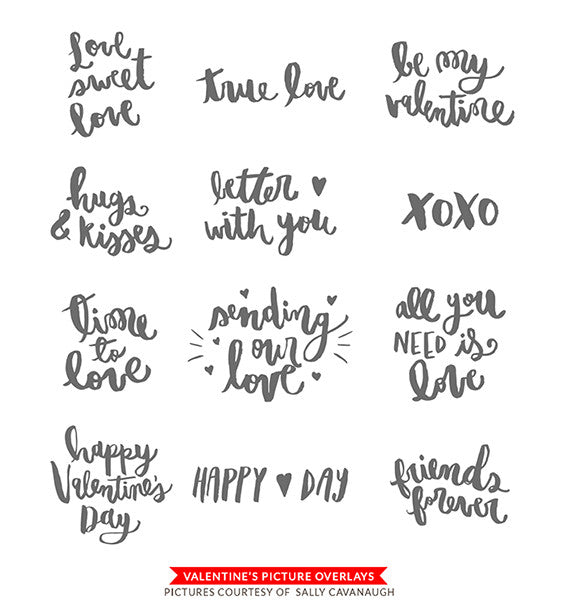 Love
sweet
love
true love
be my
valentine
hugs
& kisses
better ♥
with you
XOXO
time
to
love
sending
our
love
all you
NEED is
love
happy
Valentine's
Day
HAPPY ♥ DAY
friends
forever
VALENTINE'S PICTURE OVERLAYS
PICTURES COURTESY OF SALLY CAVANAUGH